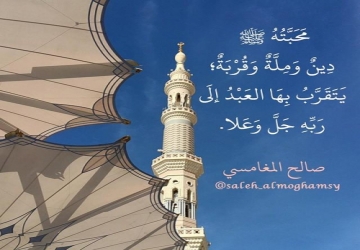 مَحَبَّتُهُ ﷺ
دِينٌ وَمِلَّةٌ وَقُرْبَةٌ؛
يَتَقَرَّبُ بِهَا العَبْدُ إلَى
رَبِّهِ جَلَّ وَعَلا.
صالح المغامسي
@saleh_almoghamsy